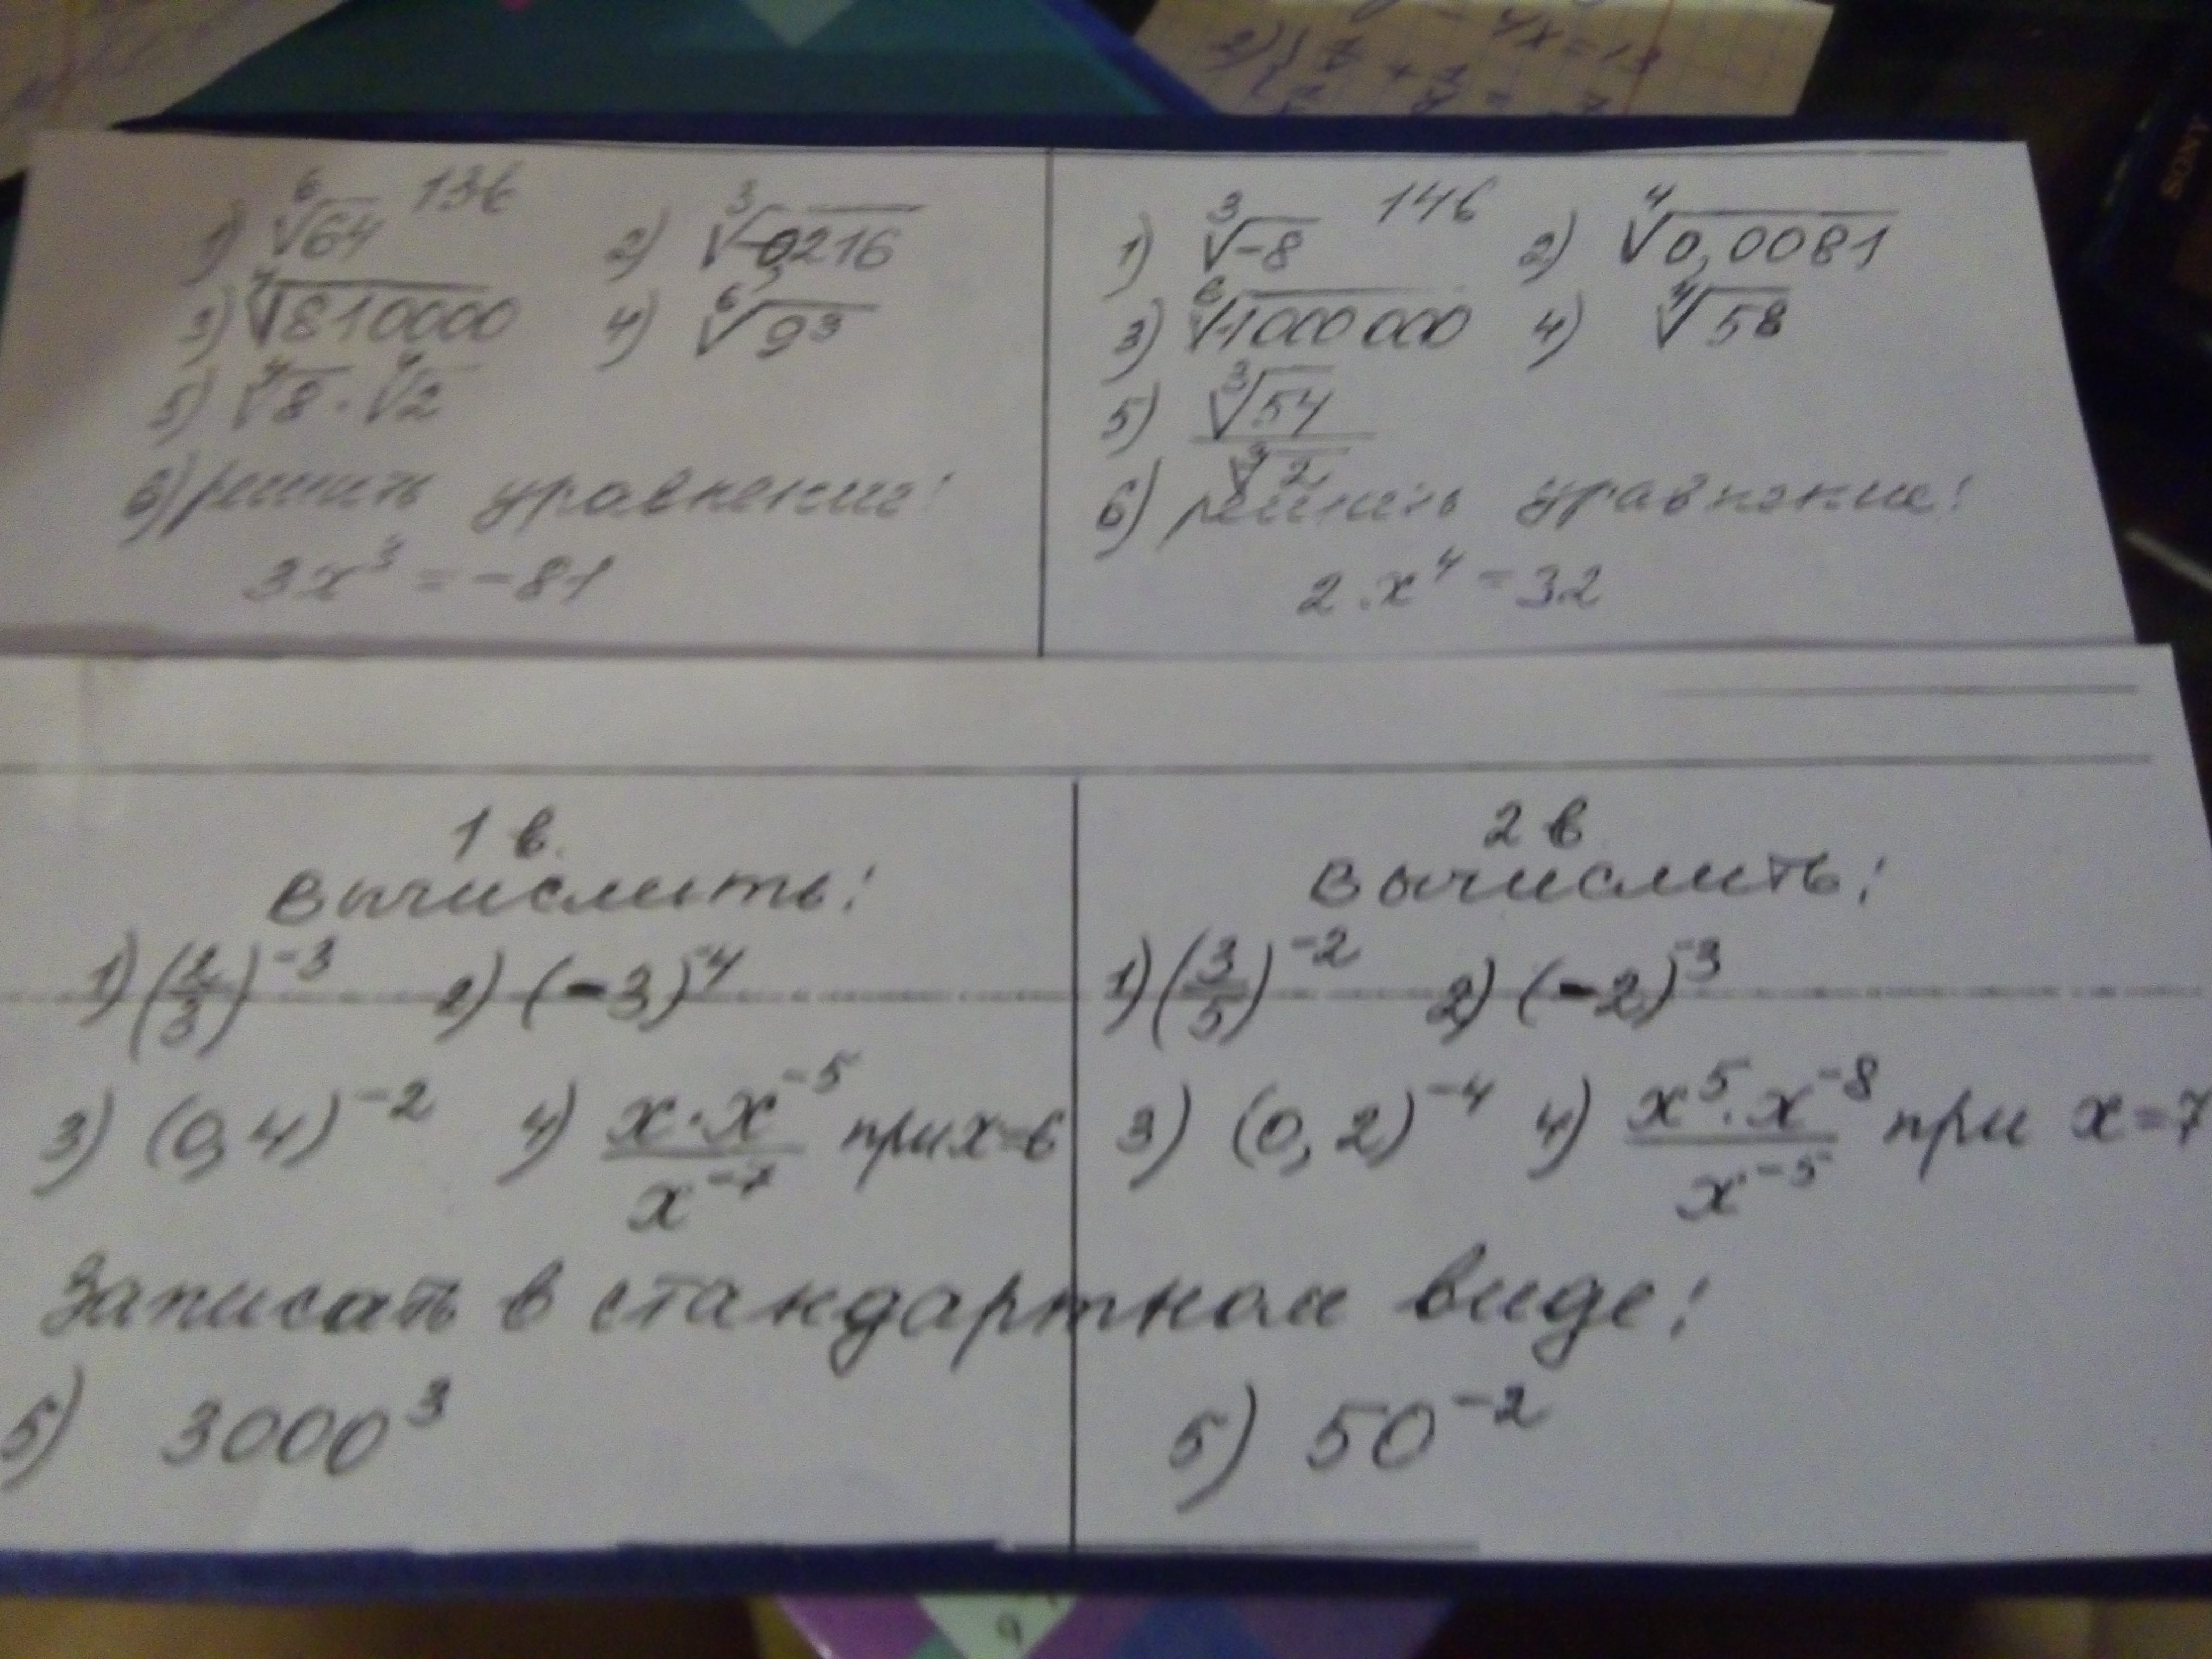 2) { - 4x = 13
SONY
13в
1) ⁶√64 2) ³√-0,216
3) ⁴√810000 4) ⁶√9³
5) ⁴√8 · ⁴√2
6) решить уравнение:
3x³ = -81
14в
1) ³√-8 2) ⁴√0,0081
3) ⁶√1000000 4) ⁴√5⁸
5) ³√54 / ³√2
6) решить уравнение:
2·x⁴ = 32
1 в.
Вычислить:
1) (2/3)⁻³ 2) (-3)⁻⁴
3) (0,4)⁻² 4) x·x⁻⁵ / x⁻⁷ при x=6
2 в
Вычислить:
1) (3/5)⁻² 2) (-2)⁻³
3) (0,2)⁻⁴ 4) x⁵·x⁻⁸ / x⁻⁵ при x=7
Записать в стандартном виде:
5) 3000³ 5) 50⁻²
9